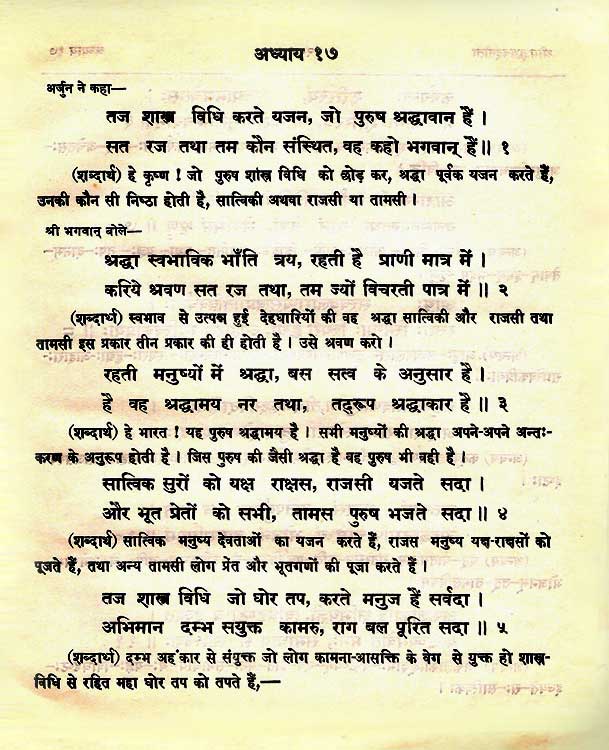 अध्याय १७
अर्जुन ने कहा—
तज शास्त्र विधि करते यजन, जो पुरुष श्रद्धावान हैं ।
सत रज तथा तम कौन संस्थित, वह कहो भगवान् हैं॥ १
(शब्दार्थ) हे कृष्ण ! जो पुरुष शास्त्र विधि को छोड़ कर, श्रद्धा पूर्वक यजन करते हैं,
उनकी कौन सी निष्ठा होती है, सात्विकी अथवा राजसी या तामसी ।
श्री भगवाद् बोले—
श्रद्धा स्वभाविक भाँति त्रय, रहती है प्राणी मात्र में ।
करिये श्रवण सत रज तथा, तम ज्यों विचरती पात्र में ॥ २
(शब्दार्थ) स्वभाव से उत्पन्न हुई देहधारियों की वह श्रद्धा सात्विकी और राजसी तथा
तामसी इस प्रकार तीन प्रकार की ही होती है । उसे श्रवण करो ।
रहती मनुष्यों में श्रद्धा, बस सत्व के अनुसार है ।
है वह श्रद्धामय नर तथा, तद्रूप श्रद्धाकार है ॥ ३
(शब्दार्थ) हे भारत ! यह पुरुष श्रद्धामय है । सभी मनुष्यों की श्रद्धा अपने-अपने अन्तः-
करण के अनुरूप होती है । जिस पुरुष की जैसी श्रद्धा है वह पुरुष भी वही है ।
सात्विक सुरों को यक्ष राक्षस, राजसी यजते सदा ।
और भूत प्रेतों को सभी, तामस पुरुष भजते सदा ॥ ४
(शब्दार्थ) सात्विक मनुष्य देवताओं का यजन करते हैं, राजस मनुष्य यक्ष-राक्षसों को
पूजते हैं, तथा अन्य तामसी लोग प्रेंत और भूतगणों की पूजा करते हैं ।
तज शास्त्र विधि जो घोर तप, करते मनुज हैं सर्वदा ।
अभिमान दम्भ सयुक्त कामरु, राग बल पूरित सदा ॥ ५
(शब्दार्थ) दम्भ अहंकार से संयुक्त जो लोग कामना-आसक्ति के वेग से युक्त हो शास्त्र-
विधि से रहित महा घोर तप को तपते हैं,—